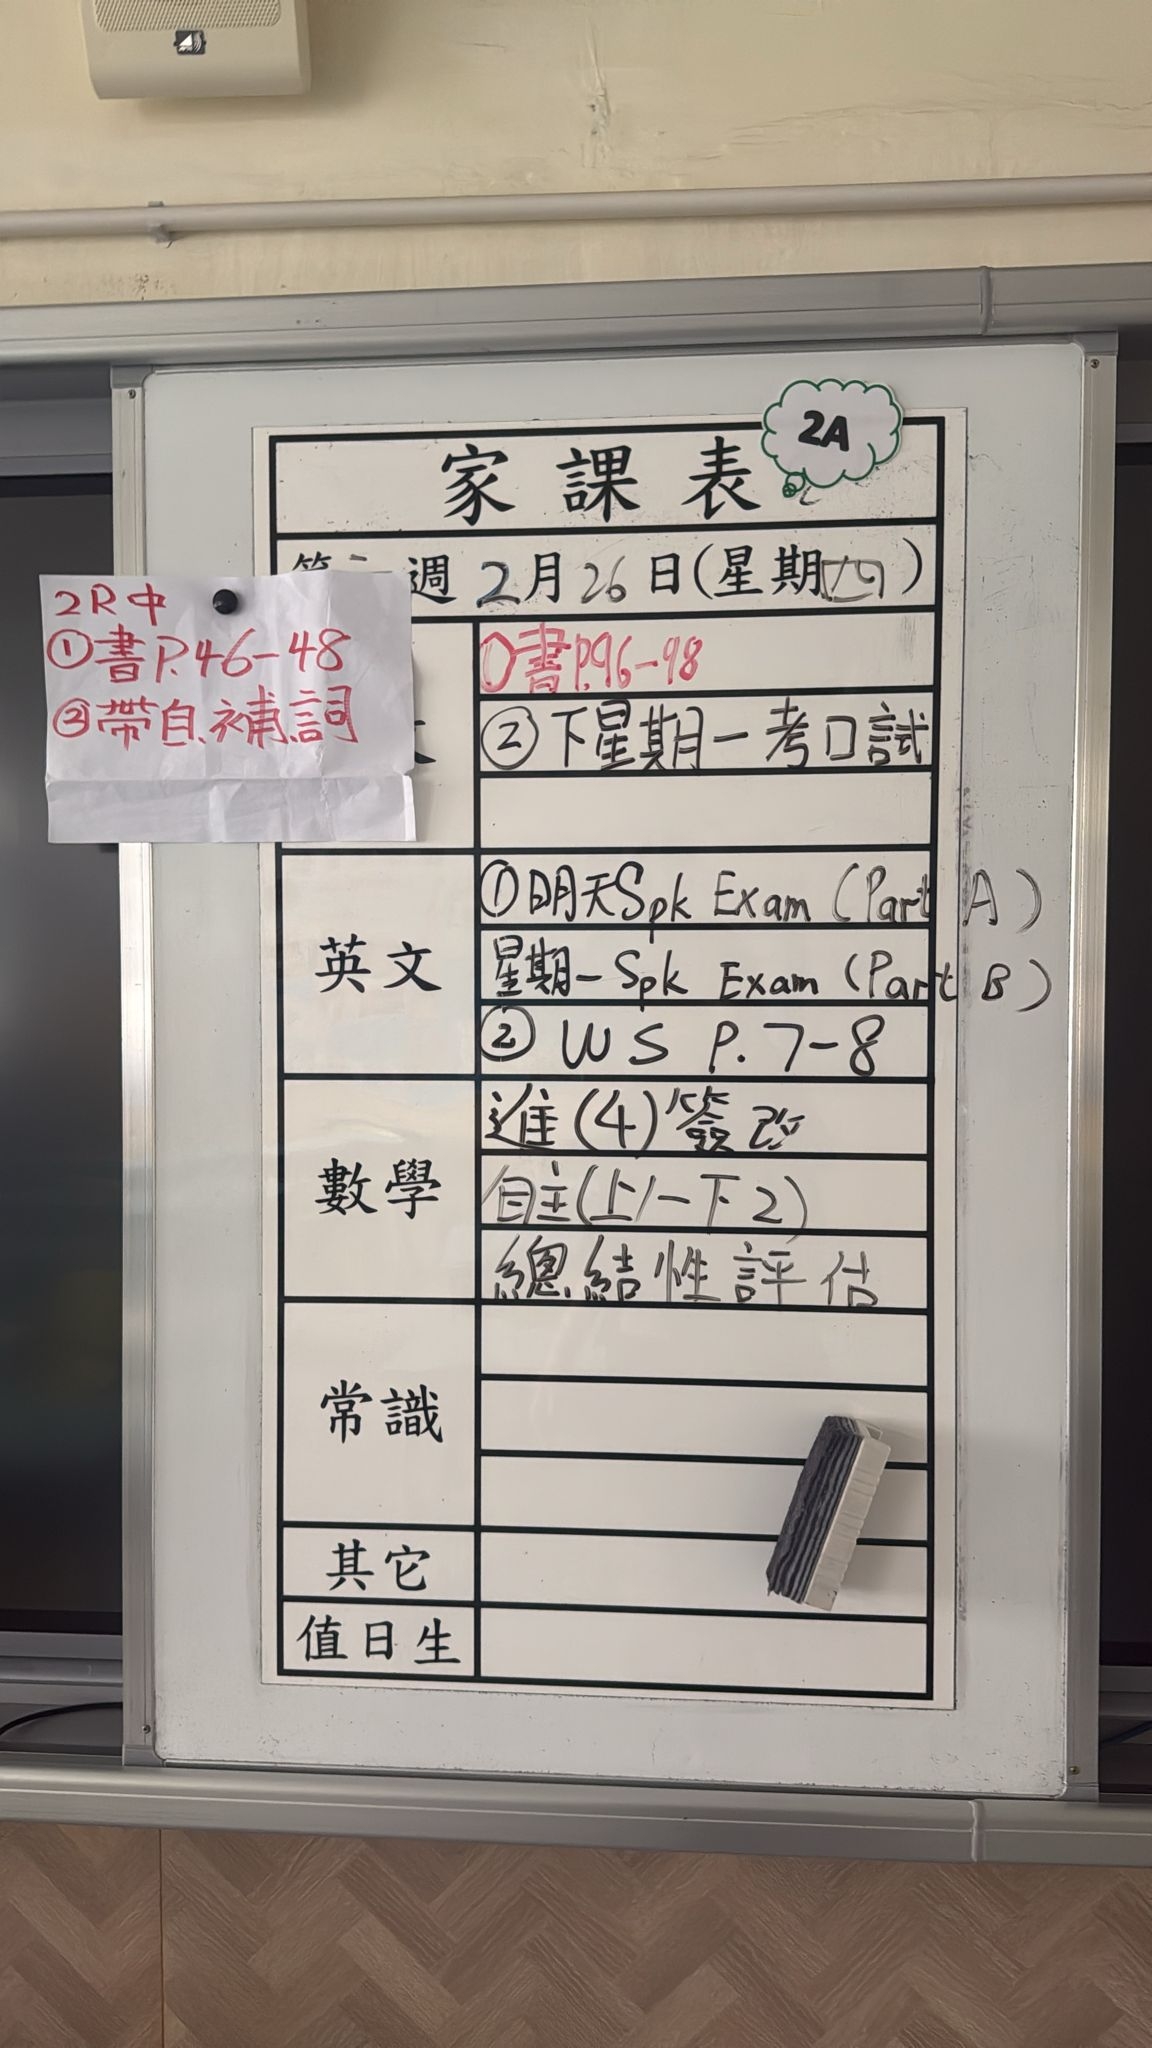 2A
家課表
週 2月26日(星期四)
2R中
①書P.46-48
②帶自、補、詞
①書P.96-98
②下星期一考口試
英文
①明天Spk Exam (Part A)
星期一Spk Exam (Part B)
② WS P.7-8
數學
進(4)簽改
自主(上1一下2)
總結性評估
常識
其它
值日生